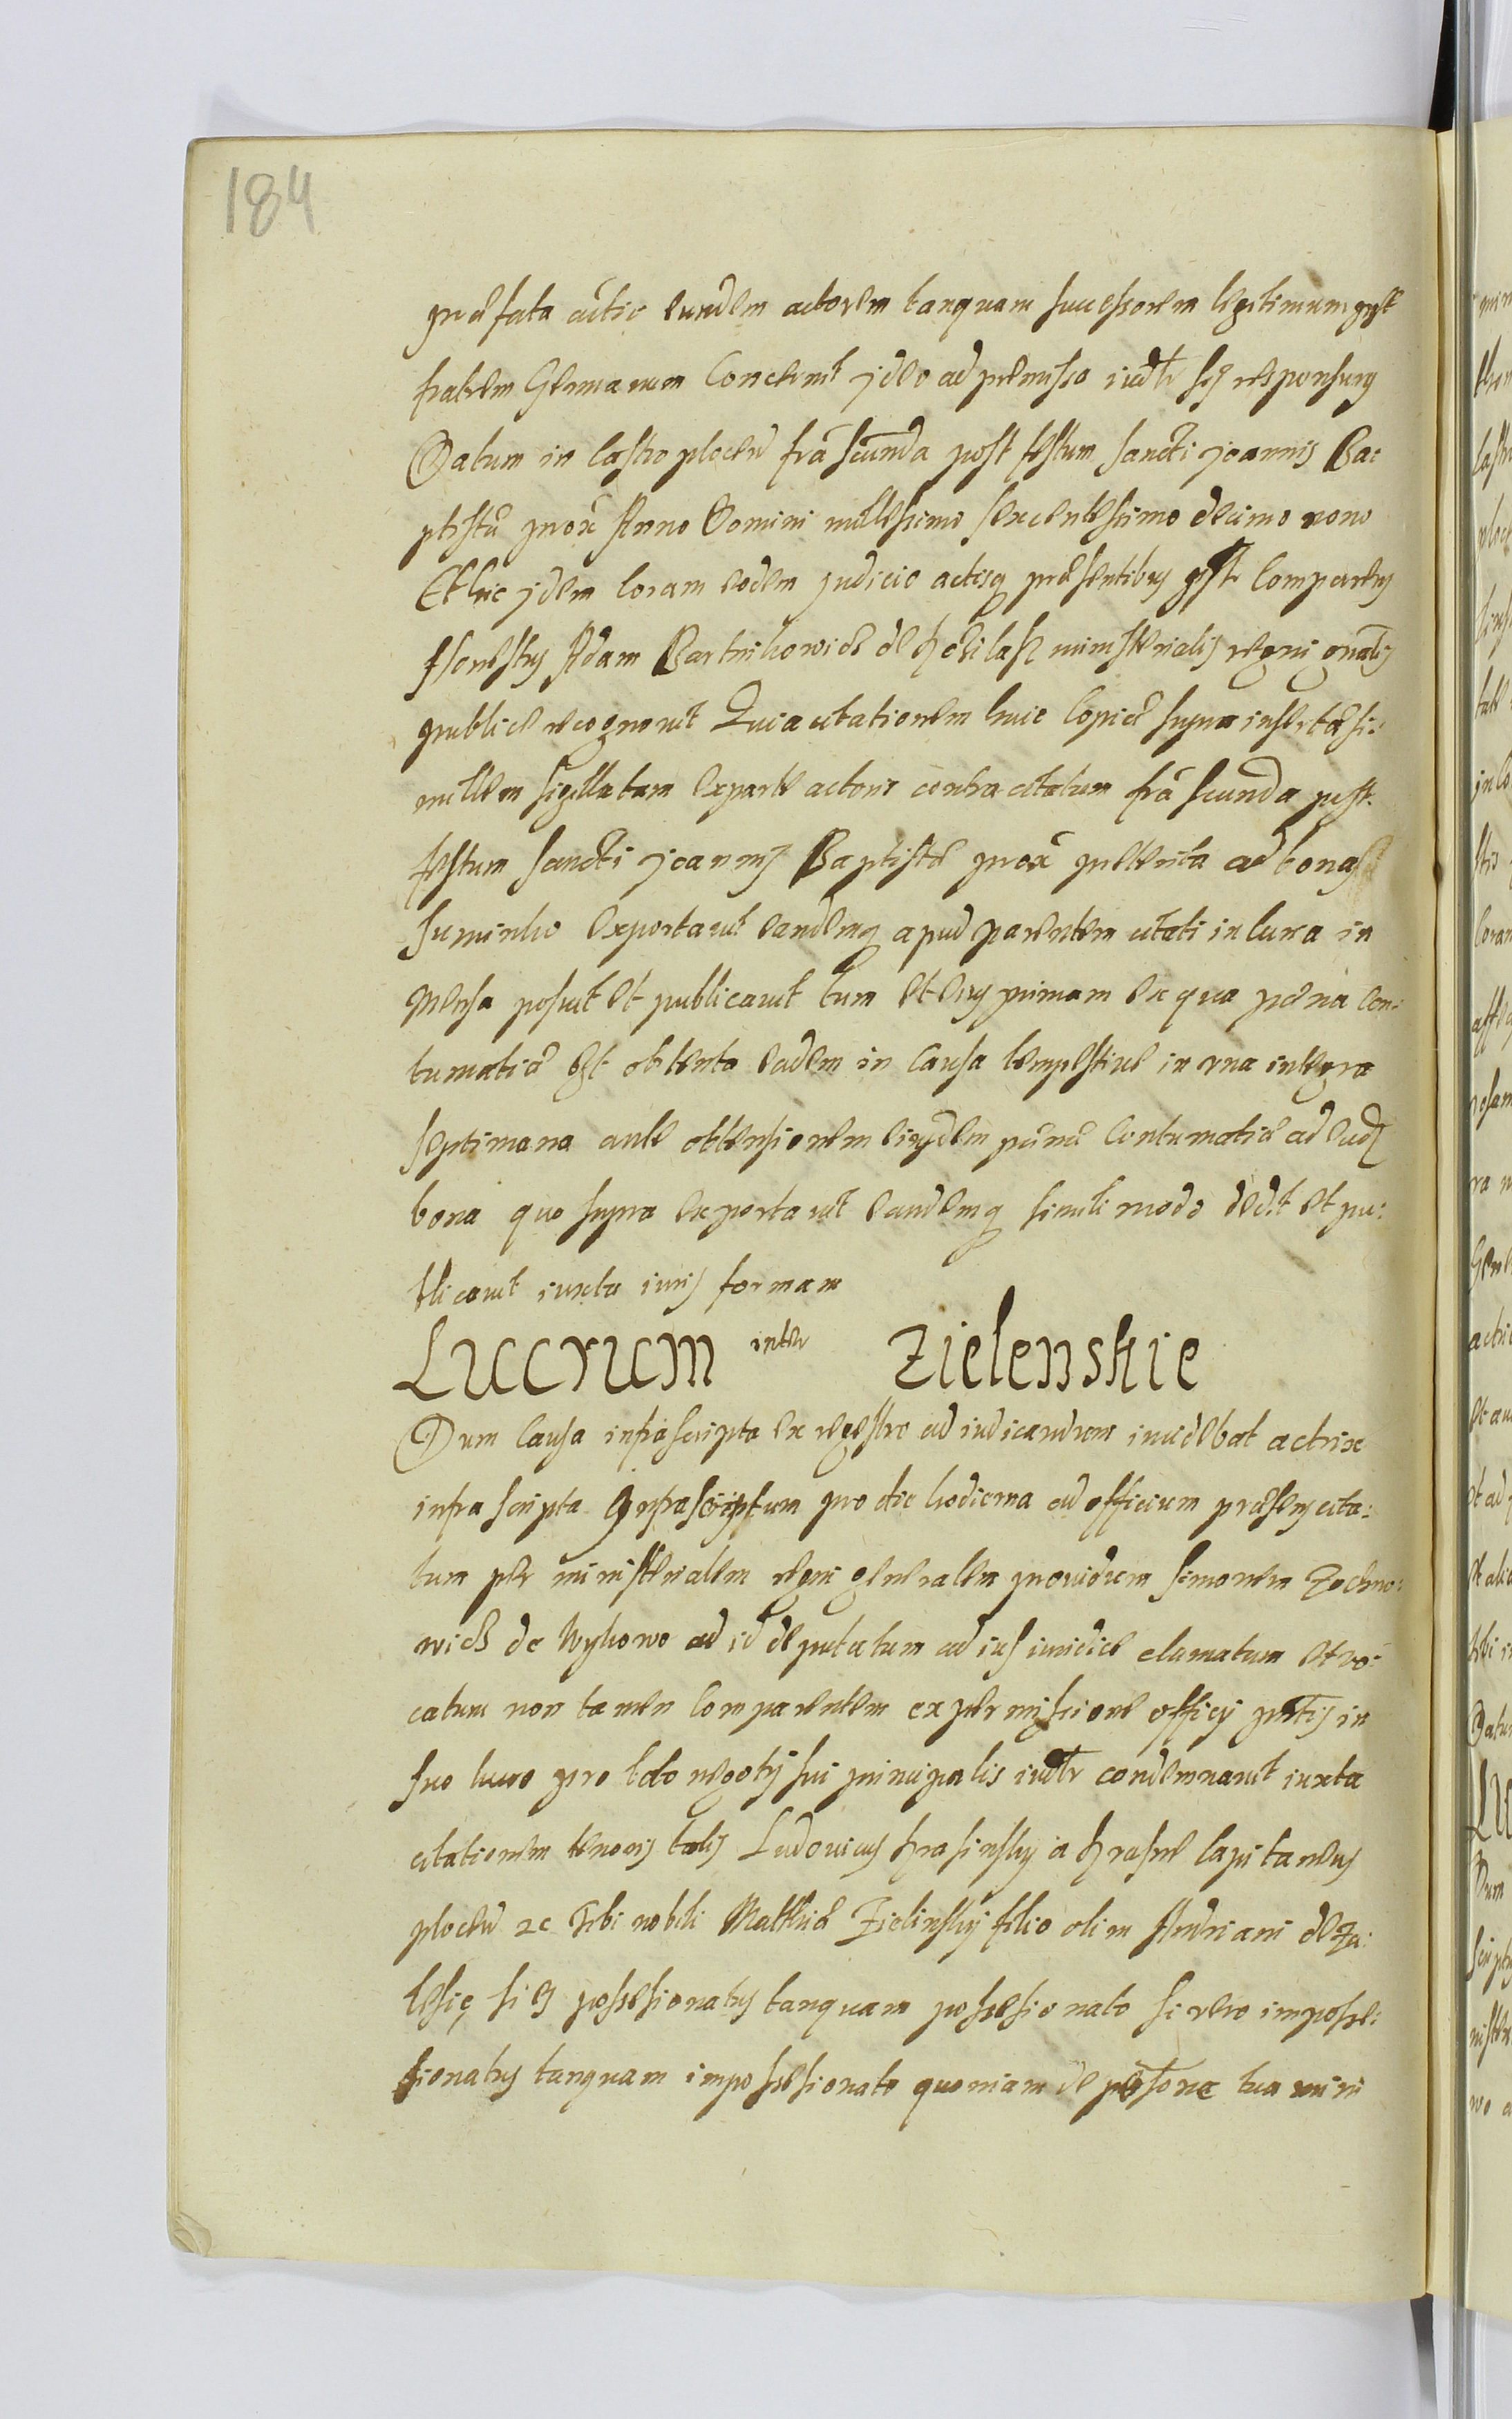 184
præfata actio eundem actorem tanquam successorem legitimum post
fratrem Germanum Concernit ideo ad præmissa iudtr sis responsurus
Datum in Castro plocen fra scunda post festum sancti joannis Ba:
ptistæ prox Anno Domini millesimo sexcentesimo decimo nono
Et hic idem Coram eodem judicio actisq præsentibus prstr Comparens
Honestus Adam Bartnikowicz de ministerialis regni gnalis
publice recognovit Quia citationem huic Copiæ supra insertæ si:
milem sigillatam exparte actoris contra citatum fra scunda post
festum sancti joannis Baptistæ prox præterita ad bona
suminko exportavit eandemq apud parentem citati in curia in
mensa posuit et publicavit tum et lucrum primum ex qua pæna Con:
tumatiæ est obtenta eadem in Causa tempestive in una integra
septimana ante obtensionem eiusdem pænæ Contumatiæ ad eadẽ
bona quo supra exportavit eandemq simili modo dedit et pu:
blicavit iuxta iuris formam
Lucrum inter Zielenskie
Dum Causa infrascripta ex regestro ad iudicandum incidebat actrix
infra scripta Infrascriptum pro die hodierna ad officium præsens cita:
tum per ministerialem regni generalem providum simonem Zochno:
wicz de Wykowo ad id deputatum ad ius iuridice clamatum et vo:
catum non tamen Comparentem ex permissione officij pntis in
suo lucro pro toto negotij sui principalis iudtr condemnavit iuxta
citationem tenoris talis Ludovicus Krasinsky à Krasne Capitaneus
plocen zc Tibi nobili Matthiæ Zielinsky filio olim Andriani de Za:
lesię si es possessionatus tanquam possessionato si vero imposse:
sionatus tanquam impossessionato quoniam de persona tua mini